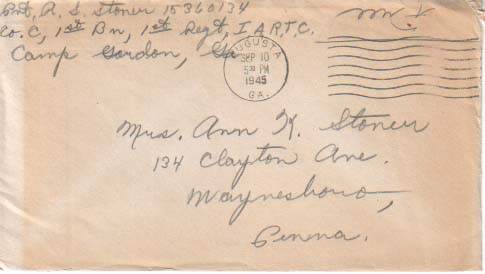 Pvt. A. S. Stoner 15360134
Co. C, 1st Bn, 1st Regt, I.A.R.T.C.
Camp Gordon, Ga
AUGUSTA
SEP 10
5 30 PM
1945
GA.
Mrs. Ann K. Stoner
134 Clayton Ave.
Waynesboro,
Penna.